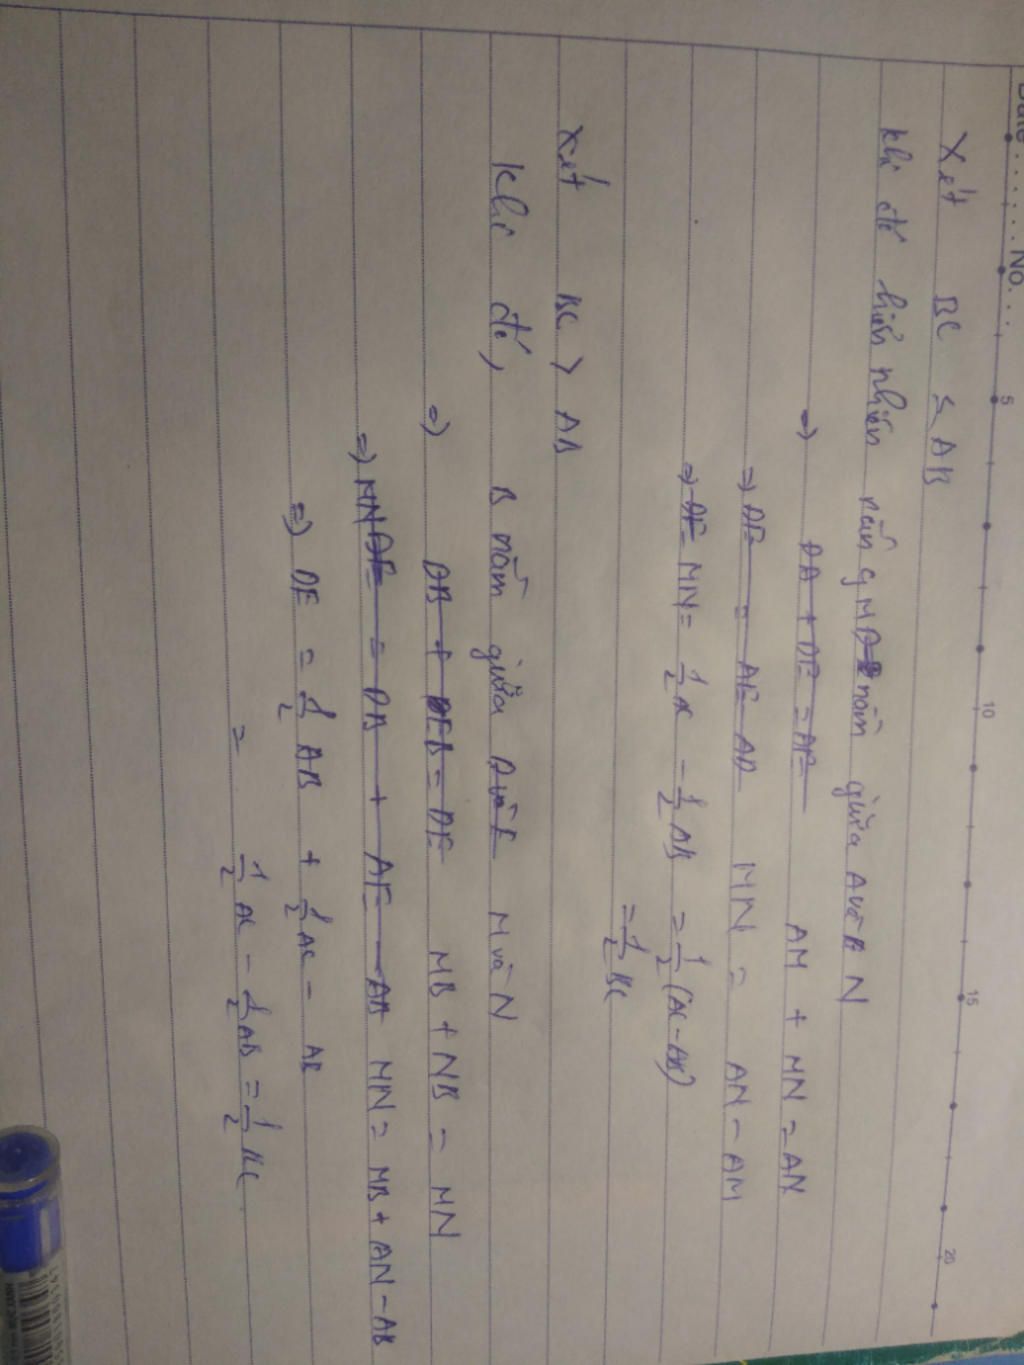 Date . . . . . . No. . .
5 10 15 20
Xét BC ≤ AB
Khi đó hiển nhiên M nằm giữa A và N
=) DA + DE = AE AM + MN = AN
=) DE = AE - AD MN = AN - AM
=) DE = MN = 1/2 AC - 1/2 AB = 1/2 (AC - AB)
= 1/2 BC
Xét BC > AB
Khi đó, B nằm giữa D và E M và N
=) DB + EB = DE MB + NB = MN
=) MN DE = DB + AE - AB MN = MB + AN - AB
=) DE = 1/2 AB + 1/2 AC - AB
= 1/2 AC - 1/2 AB = 1/2 BC